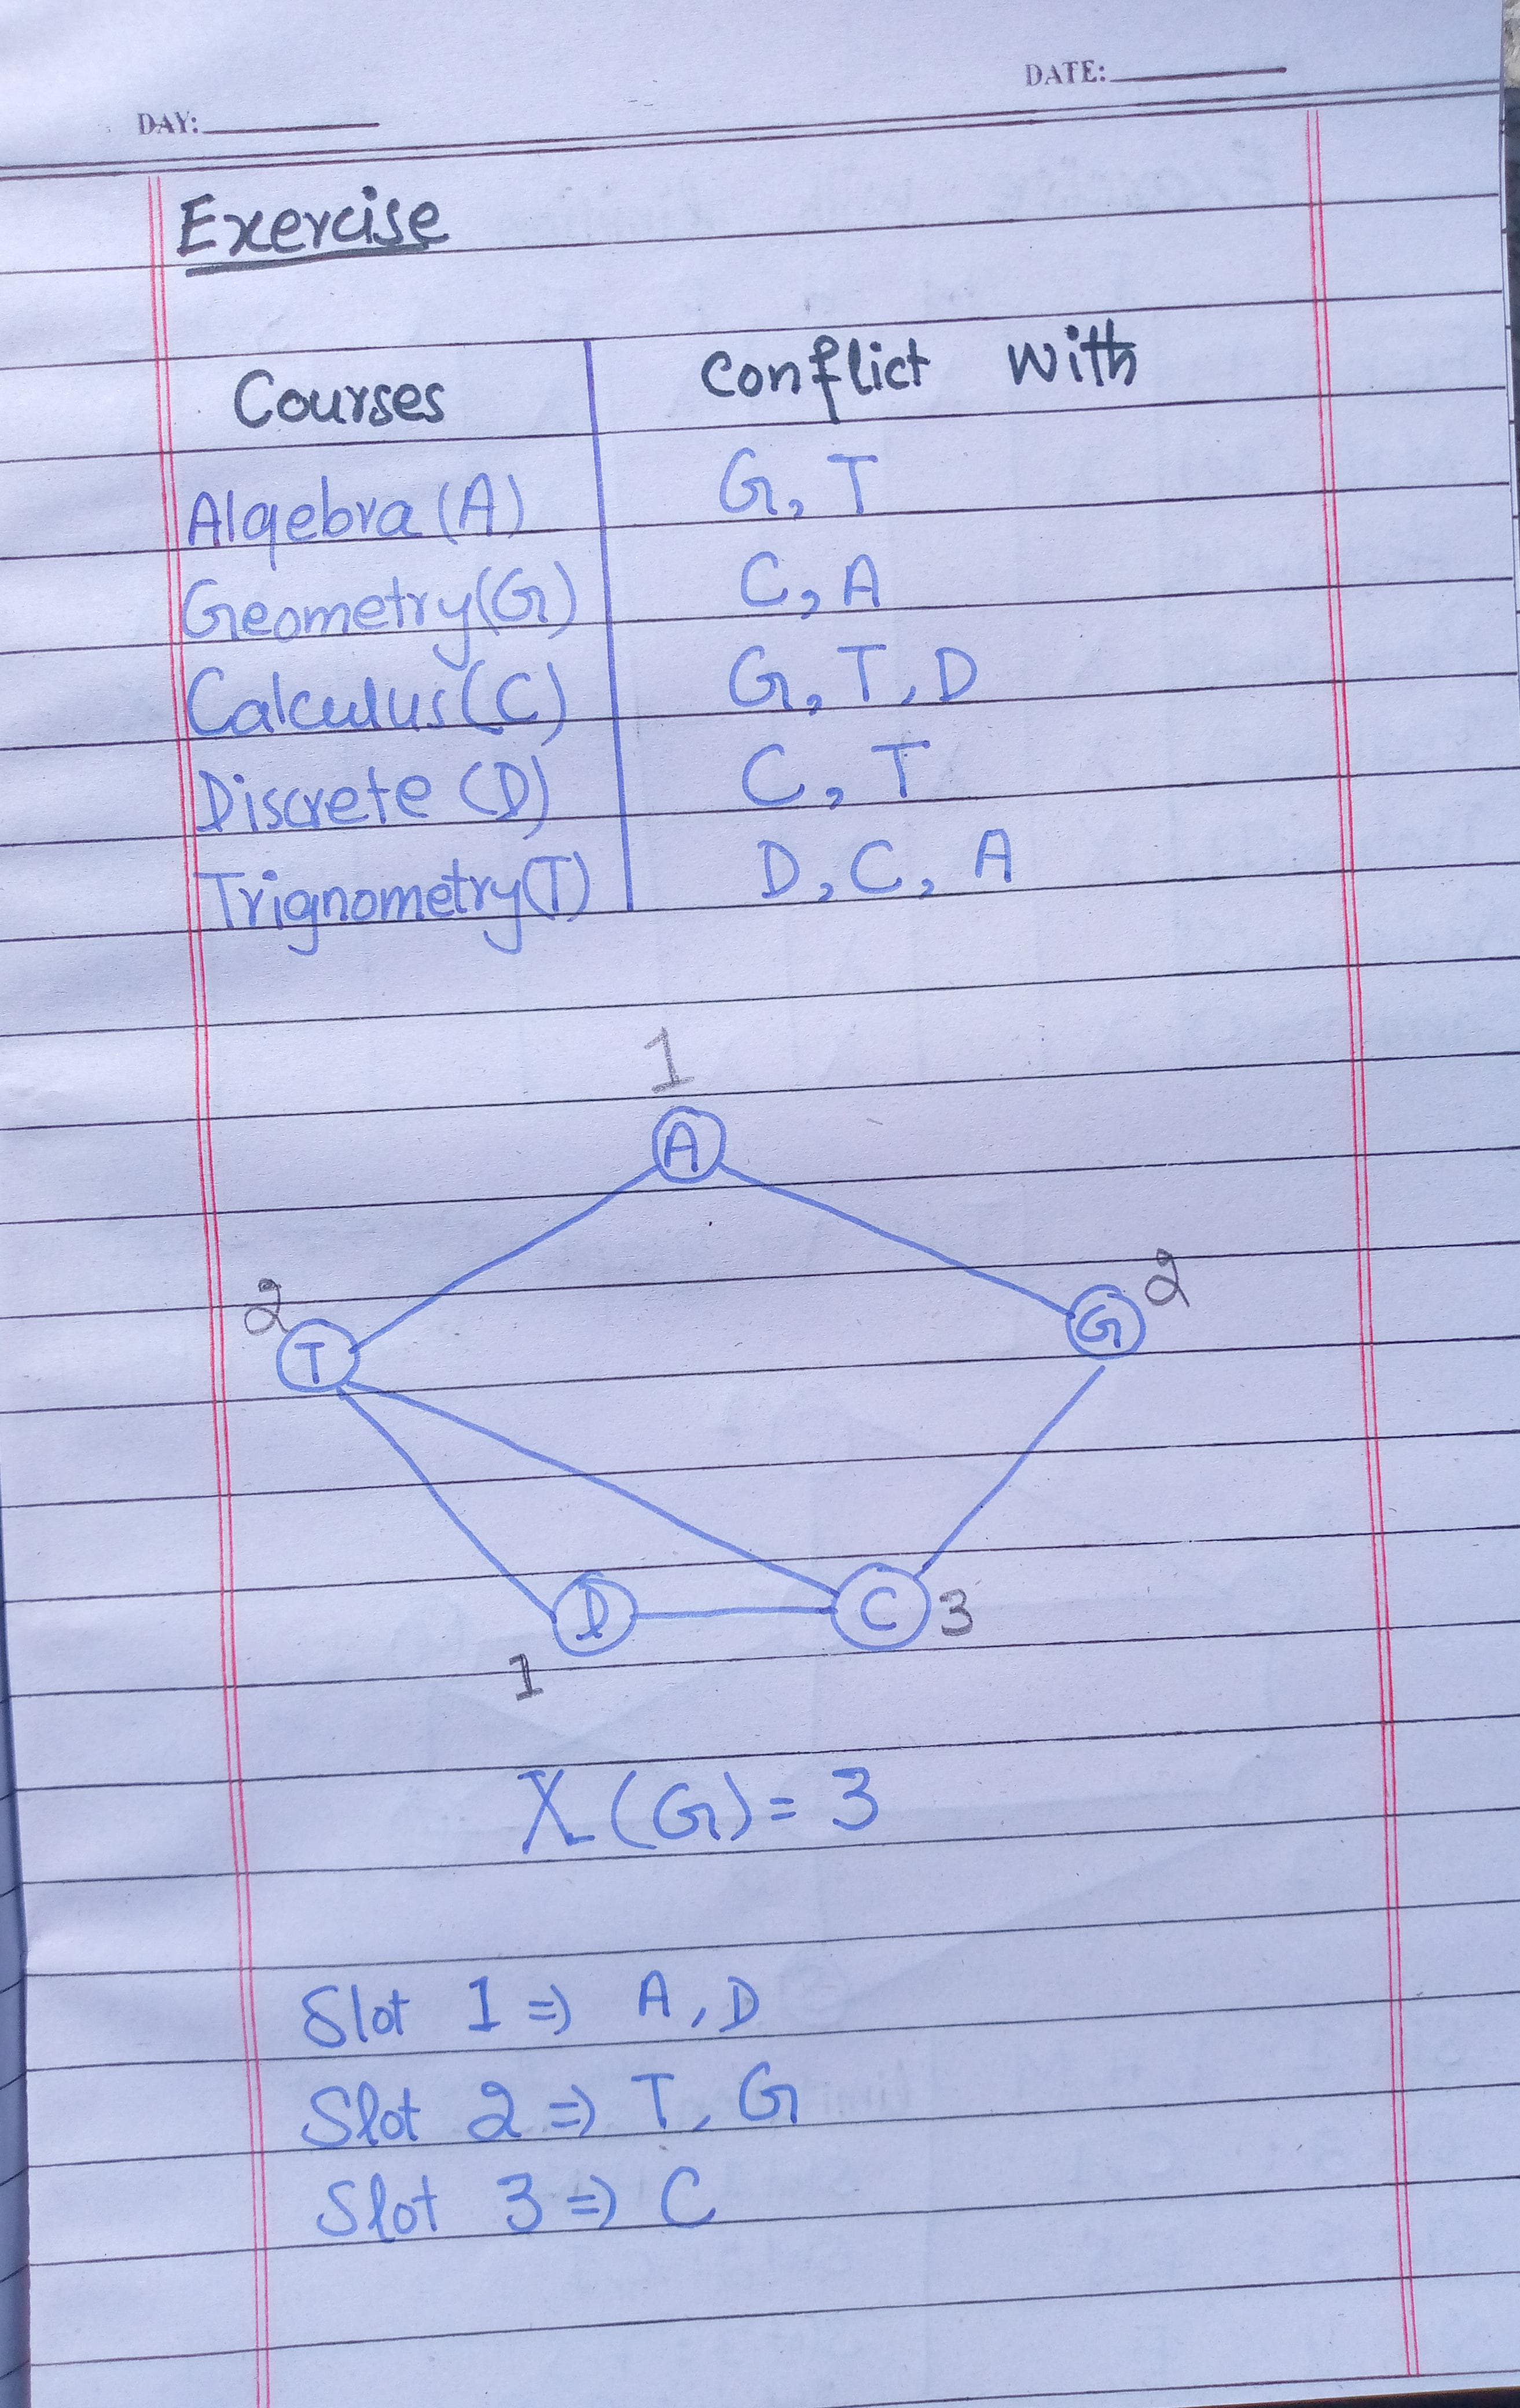 DATE:
DAY:
Exercise
Courses Conflict with
Algebra (A) G, T
Geometry (G) C, A
Calculus (C) G, T, D
Discrete (D) C, T
Trignometry (T) D, C, A
1
A
2
2
T
G
D
C 3
1
χ(G) = 3
Slot 1 ⇒ A, D
Slot 2 ⇒ T, G
Slot 3 ⇒ C